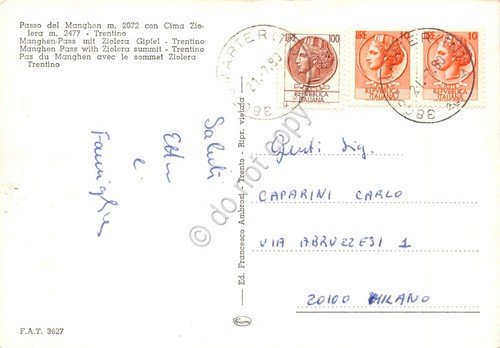 Passo del Manghen m. 2072 con Cima Zio-
lera m. 2477 - Trentino
Manghen-Pass mit Ziolera Gipfel - Trentino
Manghen Pass with Ziolera summit - Trentino
Pas du Manghen avec le sommet Ziolera
Trentino
LIRE 100
REPUBBLICA
ITALIANA
LIRE 10
REPUBBLICA
ITALIANA
LIRE 10
REPUBBLICA
ITALIANA
Saluti
e
Famiglia
Ed. Francesco Ambrosi - Trento - Ripr. vietata
Genti Sig.
CAPARINI CARLO
VIA ABRUZZESI 1
20100 MILANO
do not copy
F.A.T. 3627